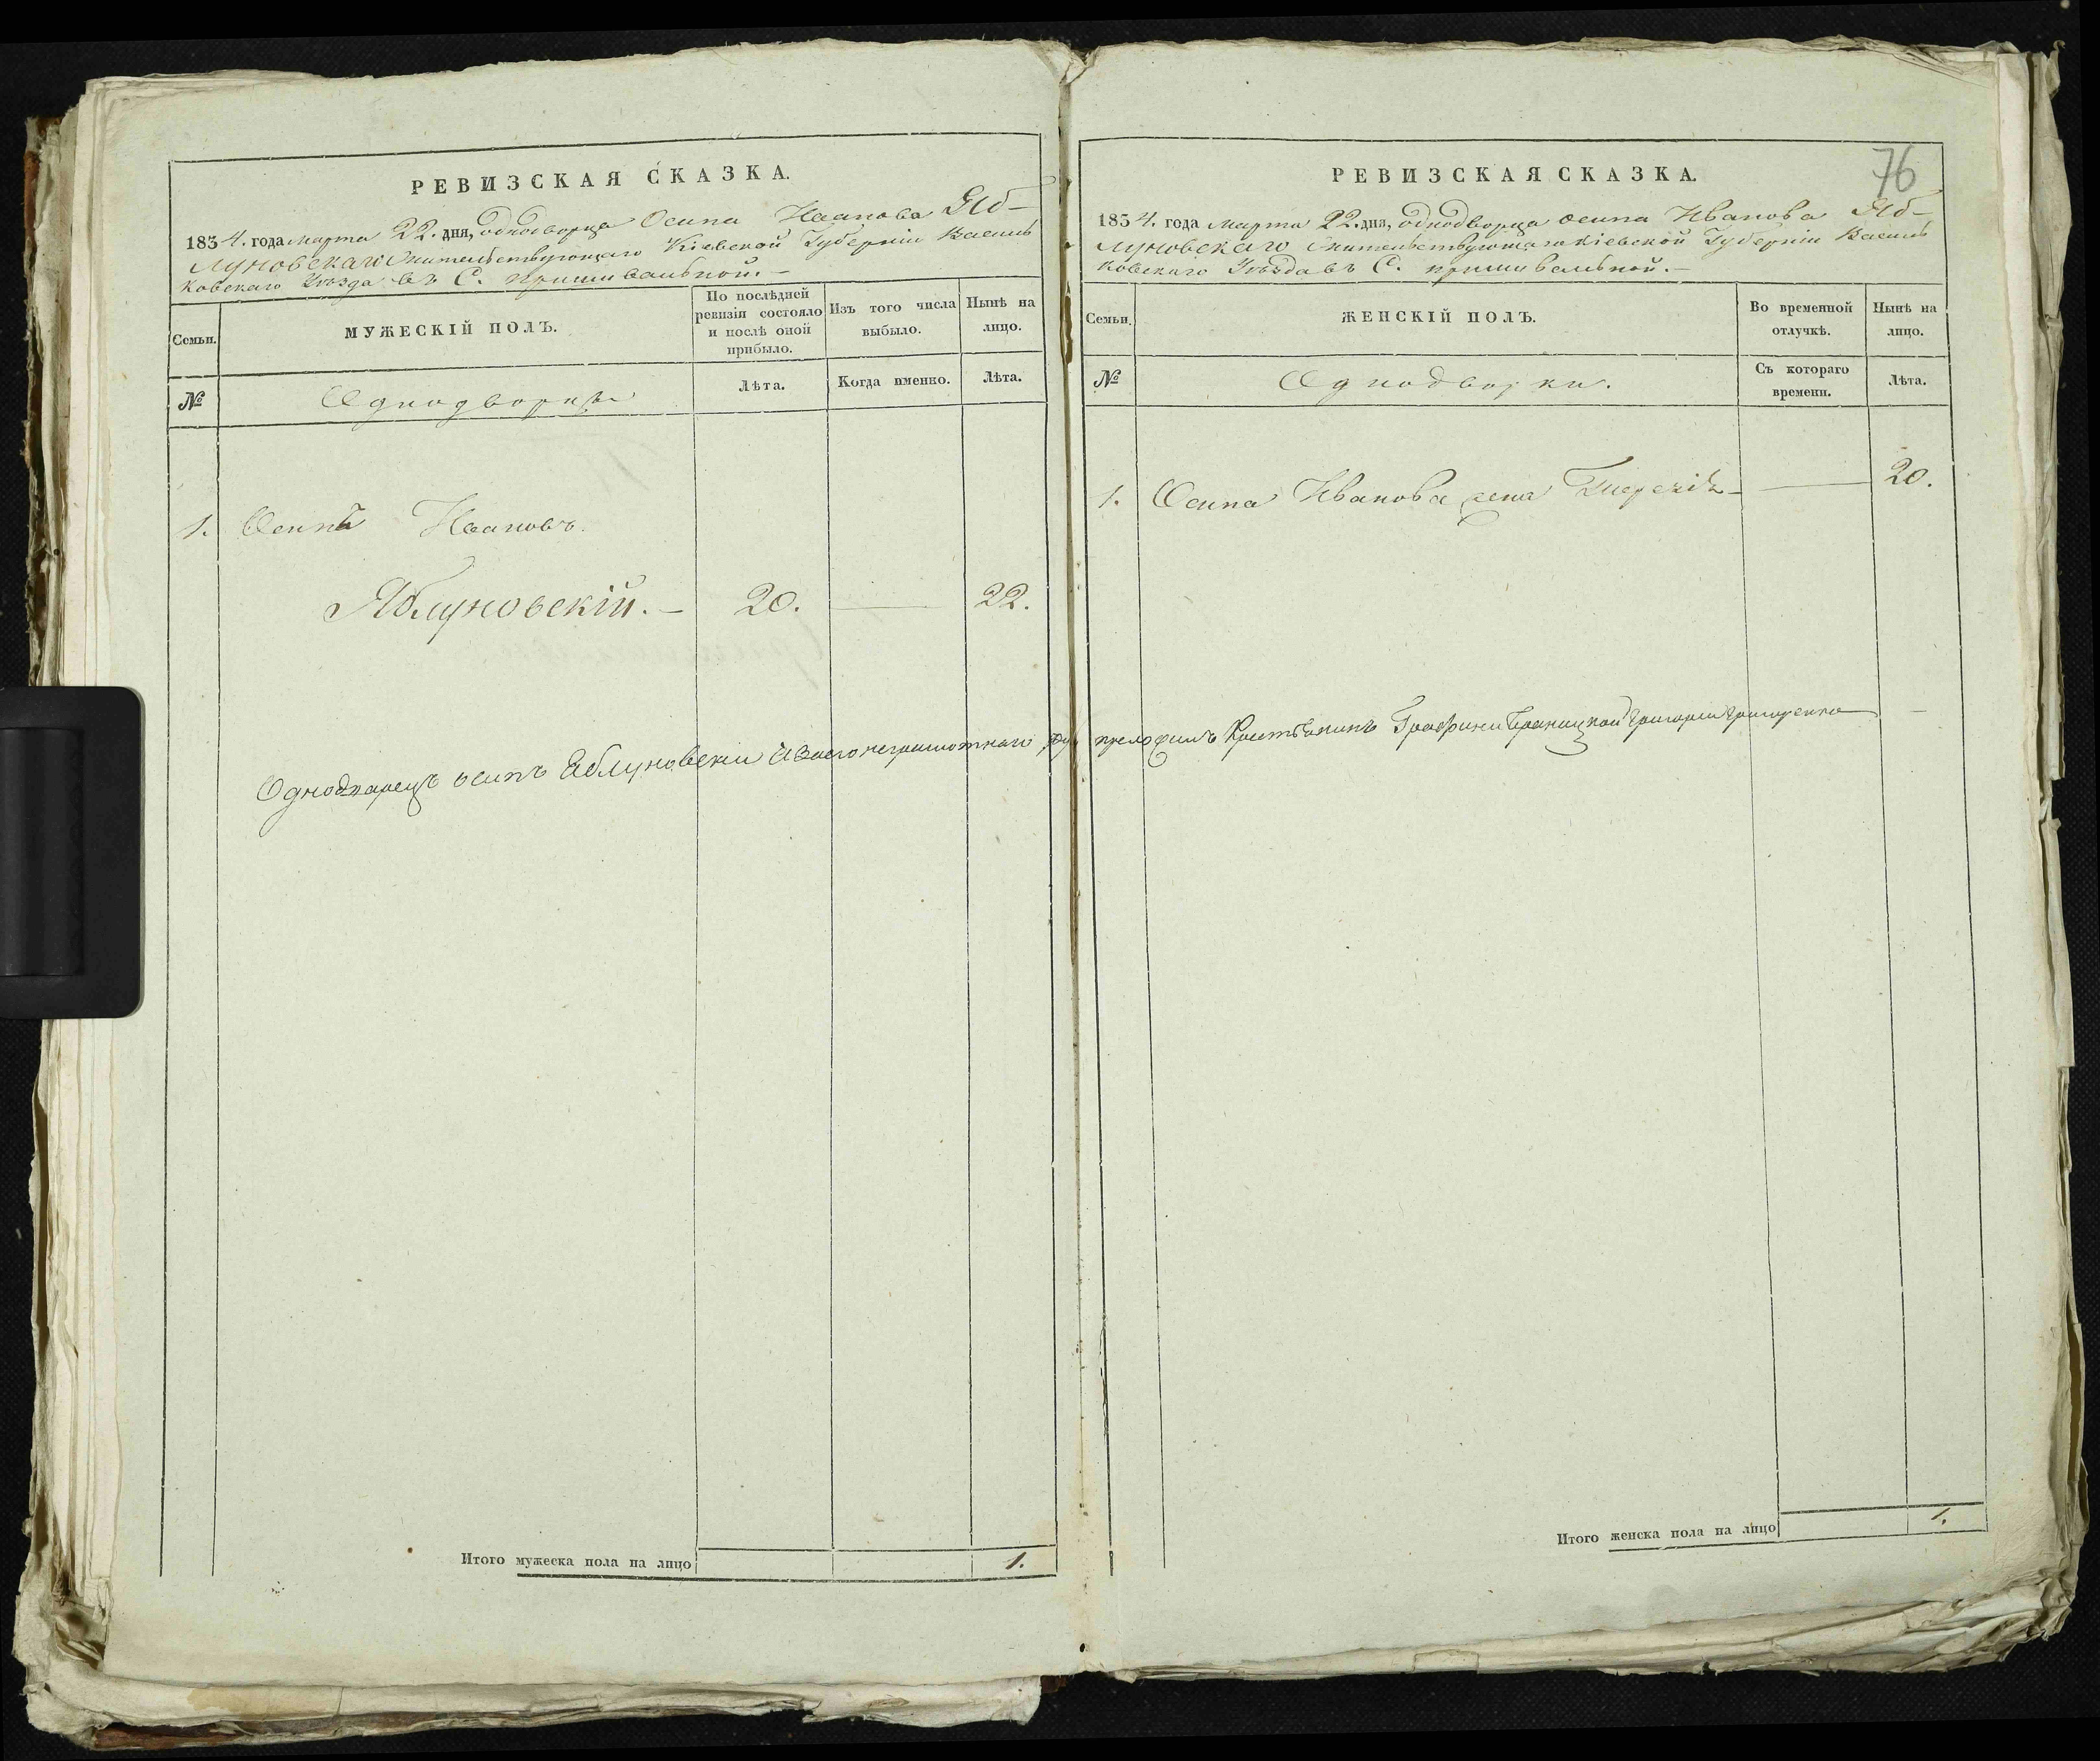 РЕВИЗСКАЯ СКАЗКА.
1834. года марта 22. дня, однодворца Осипа Иванова Яб-
луновскаго жительствующаго Кіевской Губерніи Василь
ковскаго Уѣзда въ С. Пришивальной.-
Семьи.
МУЖЕСКІЙ ПОЛЪ.
По послѣдней
ревизіи состояло
и послѣ оной
прибыло.
Изъ того числа
выбыло.
Нынѣ на
лицо.
№
Однодворцы
Лѣта.
Когда именно.
Лѣта.
1. Осипъ Ивановъ
Яблуновскій.- 20. — 22.
Однодварецъ осипъ Яблуновски а заего неграмотнаго
Итого мужеска пола на лицо 1.
76
РЕВИЗСКАЯ СКАЗКА.
1834. года марта 22. дня, однодворца Осипа Иванова Яб-
луновскаго жительствующаго Кіевской Губерніи Василь
ковскаго Уѣзда въ С. Пришивальной.-
Семьи.
ЖЕНСКІЙ ПОЛЪ.
Во временной
отлучкѣ.
Нынѣ на
лицо.
№
Однодворки.
Съ котораго
времени.
Лѣта.
1. Осипа Иванова жена — 20.
приложилъ Крестьянинъ Графини Браницкой Григорий Григоренко
Итого женска пола на лицо 1.